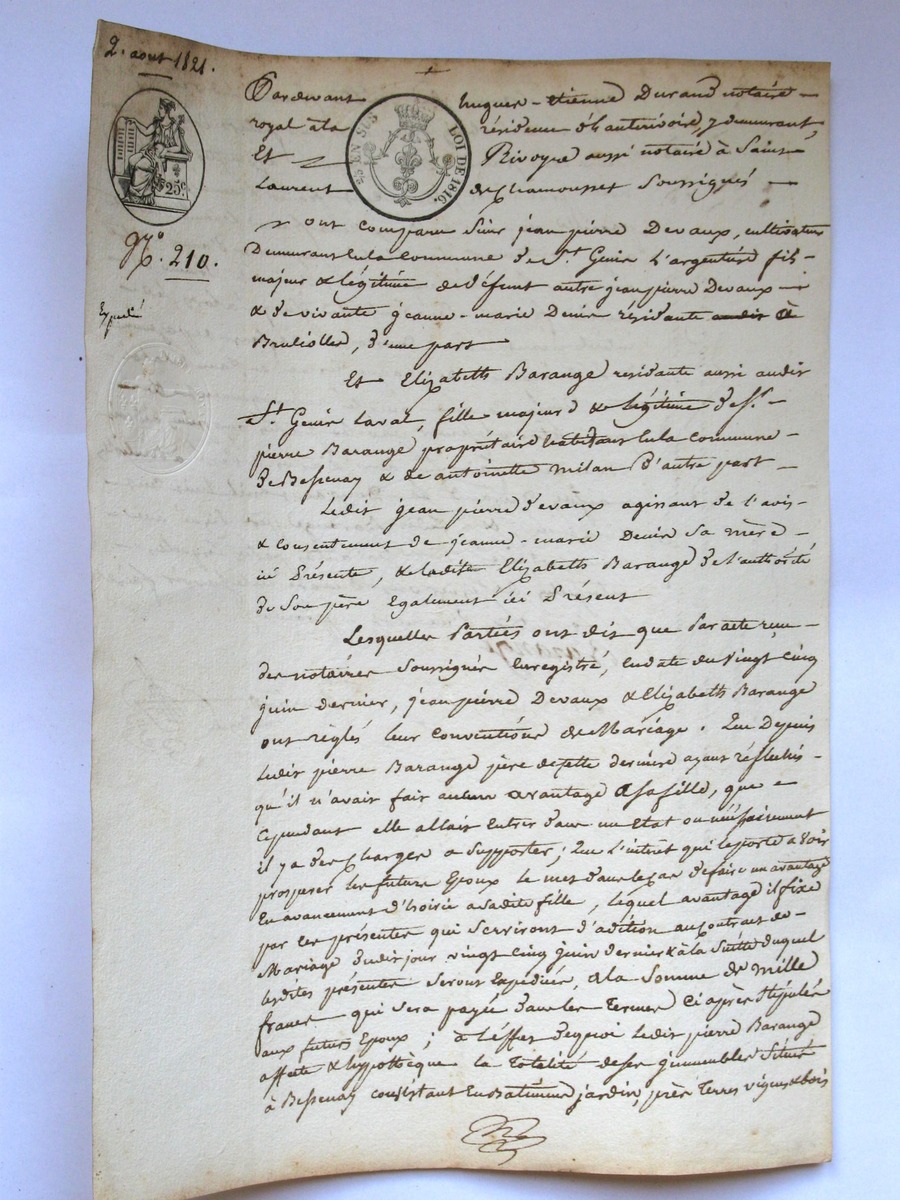 2. aout 1821.
25c
N.o 210.
Expedié
EN SUS LOI DE 1816.
Pardevant hugues-étienne Durand notaire
royal à la résidence d'hauterivoire, y demeurant,
Et Rivoyre aussi notaire à Saint
Laurent de Chamousset soussignés
ont comparu sieur jean pierre Devaux, cultivateur
Demeurant en la commune de St. Genis L'argentiére fils
majeur & légitime de défunt autre jean pierre Devaux
& de vivante jeanne-marie Denis résidante à
Brullolles, d'une part
Et Elizabeth Barange residante aussi audit
St. Genis Laval, fille majeure & légitime de Sr.
pierre Barange propriétaire habitant en la commune
de Bessenay & de antoinette milan d'autre part
Ledit jean pierre devaux agissant de l'avis
& consentement de jeanne-marie Denis sa mère
ici Présente, & ladite Elizabeth Barange de l'authorité
de son père egalement ici Présent
Lesquelles Parties ont dit que Par acte reçu
des notaires soussignés Enregistré, en date du vingt cinq
juin dernier, jean pierre Devaux & Elizabeth Barange
ont règlés leur conventions de Mariage. Que Depuis
Ledit pierre Barange père de cette derniere ayant réflechis
qu'il n'avait fait aucun avantage a sa fille, que
cependant elle allait Entrer dans un Etat ou nécessairement
il y a des charges a supporter; que L'intrêt qui le porte à voir
prosperer les futurs Epoux le met dans le cas de faire un avantage
En avancement d'hoirie a sadite fille, lequel avantage il fixe
par les présentes qui serviront d'adition au contrat de
Mariage dudit jour vingt cinq juin dernier & à la suitte duquel
lesdites présentes seront Expediées, a la somme de mille
francs qui sera payée dans les Termes ci après stipulés
aux futurs Epoux; à l'éffet de quoi Ledit pierre Barange
affecte & hyppothèque la Totalité de ses jmmeubles situés
à Bessenay consistant En Batiments jardin, près Terres vignes & bois